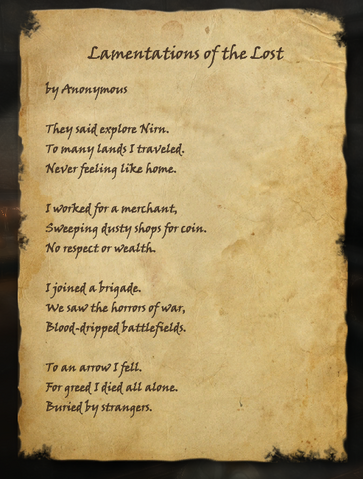 Lamentations of the Lost
by Anonymous
They said explore Nirn.
To many lands I traveled.
Never feeling like home.
I worked for a merchant,
Sweeping dusty shops for coin.
No respect or wealth.
I joined a brigade.
We saw the horrors of war,
Blood-dripped battlefields.
To an arrow I fell.
For greed I died all alone.
Buried by strangers.